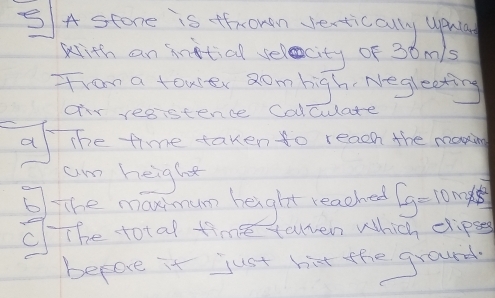 5] A stone is thrown vertically upward
with an initial velocity of 30m/s
From a tower 20m high. Neglecting
air resistence calculate
a] The time taken to reach the maxim
um height
b] The maximum height reached [g=10m/s²
c] The total time taken which elipses
before it just hit the ground.